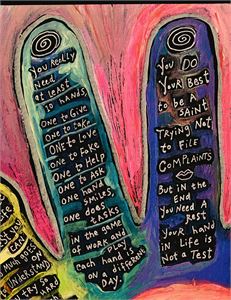 You Really
Need
at Least
10 hands,
one to Give
one to take
one to Love
one to Fake
one to Help
one to Ask
one hand
smiles,
one does
tasks
in the game
of work and
play
each hand is
on a different
DAY.
You DO
Your Best
to be A
SAINT
Trying Not
to File
COMPLAINTS
But in the
End
You Need A
Rest
your hand
in Life is
Not a Test
you
CAN
MUCH DOES
ON
UNDERSTAND
try so
HARD